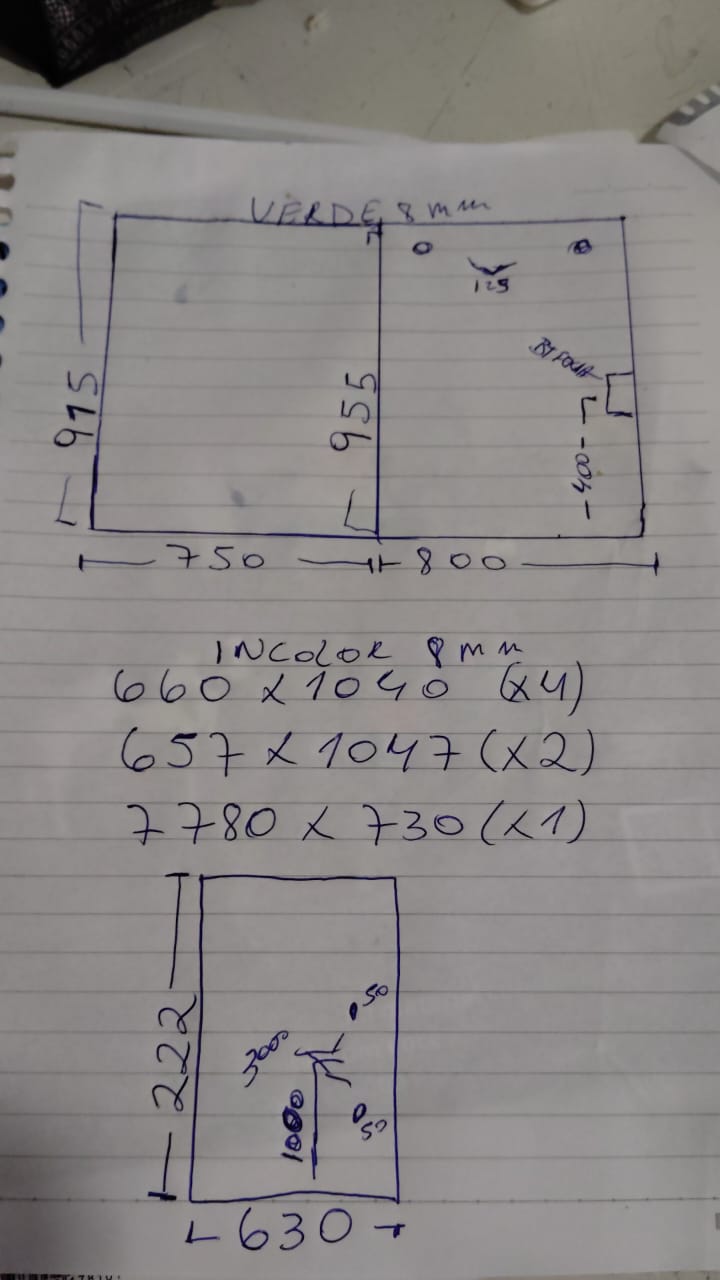 VERDE 8 mm
125
915
955
400
750
800
INCOLOR 8 mm
660 x 1040 (x4)
657 x 1047 (x2)
7780 x 730 (x1)
50
300
1000
50
222
630